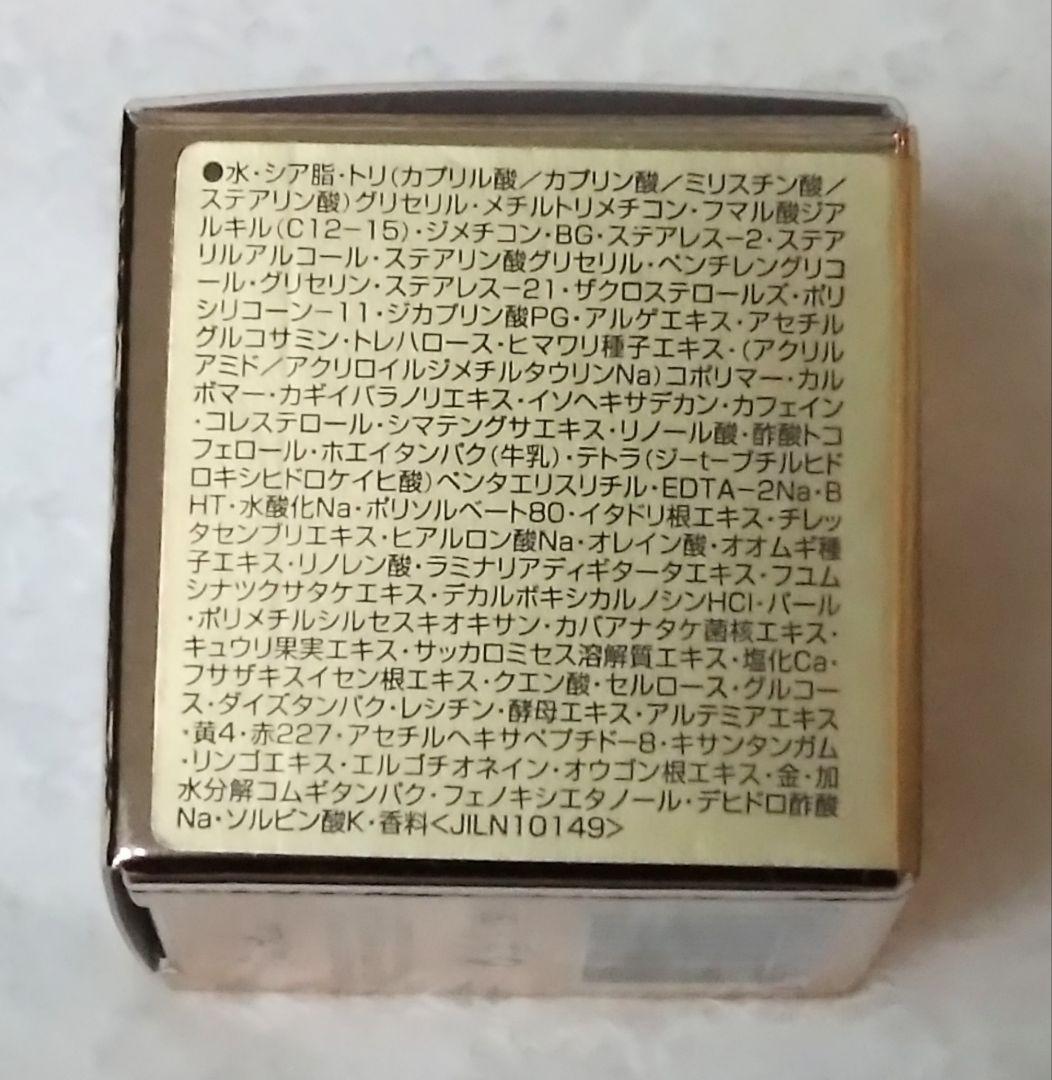 ●水・シア脂・トリ(カプリル酸／カプリン酸／ミリスチン酸／
ステアリン酸)グリセリル・メチルトリメチコン・フマル酸ジア
ルキル(C12−15)・ジメチコン・BG・ステアレス−2・ステア
リルアルコール・ステアリン酸グリセリル・ペンチレングリコ
ール・グリセリン・ステアレス−21・ザクロステロールズ・ポリ
シリコーン−11・ジカプリン酸PG・アルゲエキス・アセチル
グルコサミン・トレハロース・ヒマワリ種子エキス・(アクリル
アミド／アクリロイルジメチルタウリンNa)コポリマー・カル
ボマー・カギイバラノリエキス・イソヘキサデカン・カフェイン
・コレステロール・シマテングサエキス・リノール酸・酢酸トコ
フェロール・ホエイタンパク(牛乳)・テトラ(ジ−t−ブチルヒド
ロキシヒドロケイヒ酸)ペンタエリスリチル・EDTA−2Na・B
HT・水酸化Na・ポリソルベート80・イタドリ根エキス・チレッ
タセンブリエキス・ヒアルロン酸Na・オレイン酸・オオムギ種
子エキス・リノレン酸・ラミナリアディギタータエキス・フユム
シナツクサタケエキス・デカルボキシカルノシンHCl・パール
・ポリメチルシルセスキオキサン・カバアナタケ菌核エキス・
キュウリ果実エキス・サッカロミセス溶解質エキス・塩化Ca・
フサザキスイセン根エキス・クエン酸・セルロース・グルコー
ス・ダイズタンパク・レシチン・酵母エキス・アルテミアエキス
・黄4・赤227・アセチルヘキサペプチド−8・キサンタンガム
・リンゴエキス・エルゴチオネイン・オウゴン根エキス・金・加
水分解コムギタンパク・フェノキシエタノール・デヒドロ酢酸
Na・ソルビン酸K・香料<JILN10149>